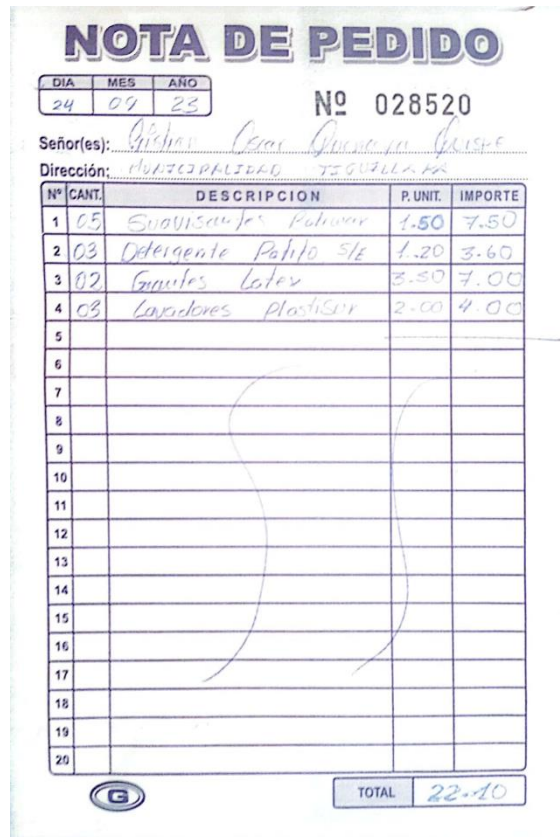 NOTA DE PEDIDO
DIA MES AÑO
24 09 23
Nº 028520
Señor(es): Oscar Quispe
Dirección: MUNICIPALIDAD
Nº CANT. DESCRIPCION P. UNIT. IMPORTE
1 05 Suavisantes 1.50 7.50
2 03 Detergente Patito S/E 1.20 3.60
3 02 Guantes Latex 3.50 7.00
4 03 Lavadores plastisur 2.00 4.00
5
6
7
8
9
10
11
12
13
14
15
16
17
18
19
20
G
TOTAL 22.10